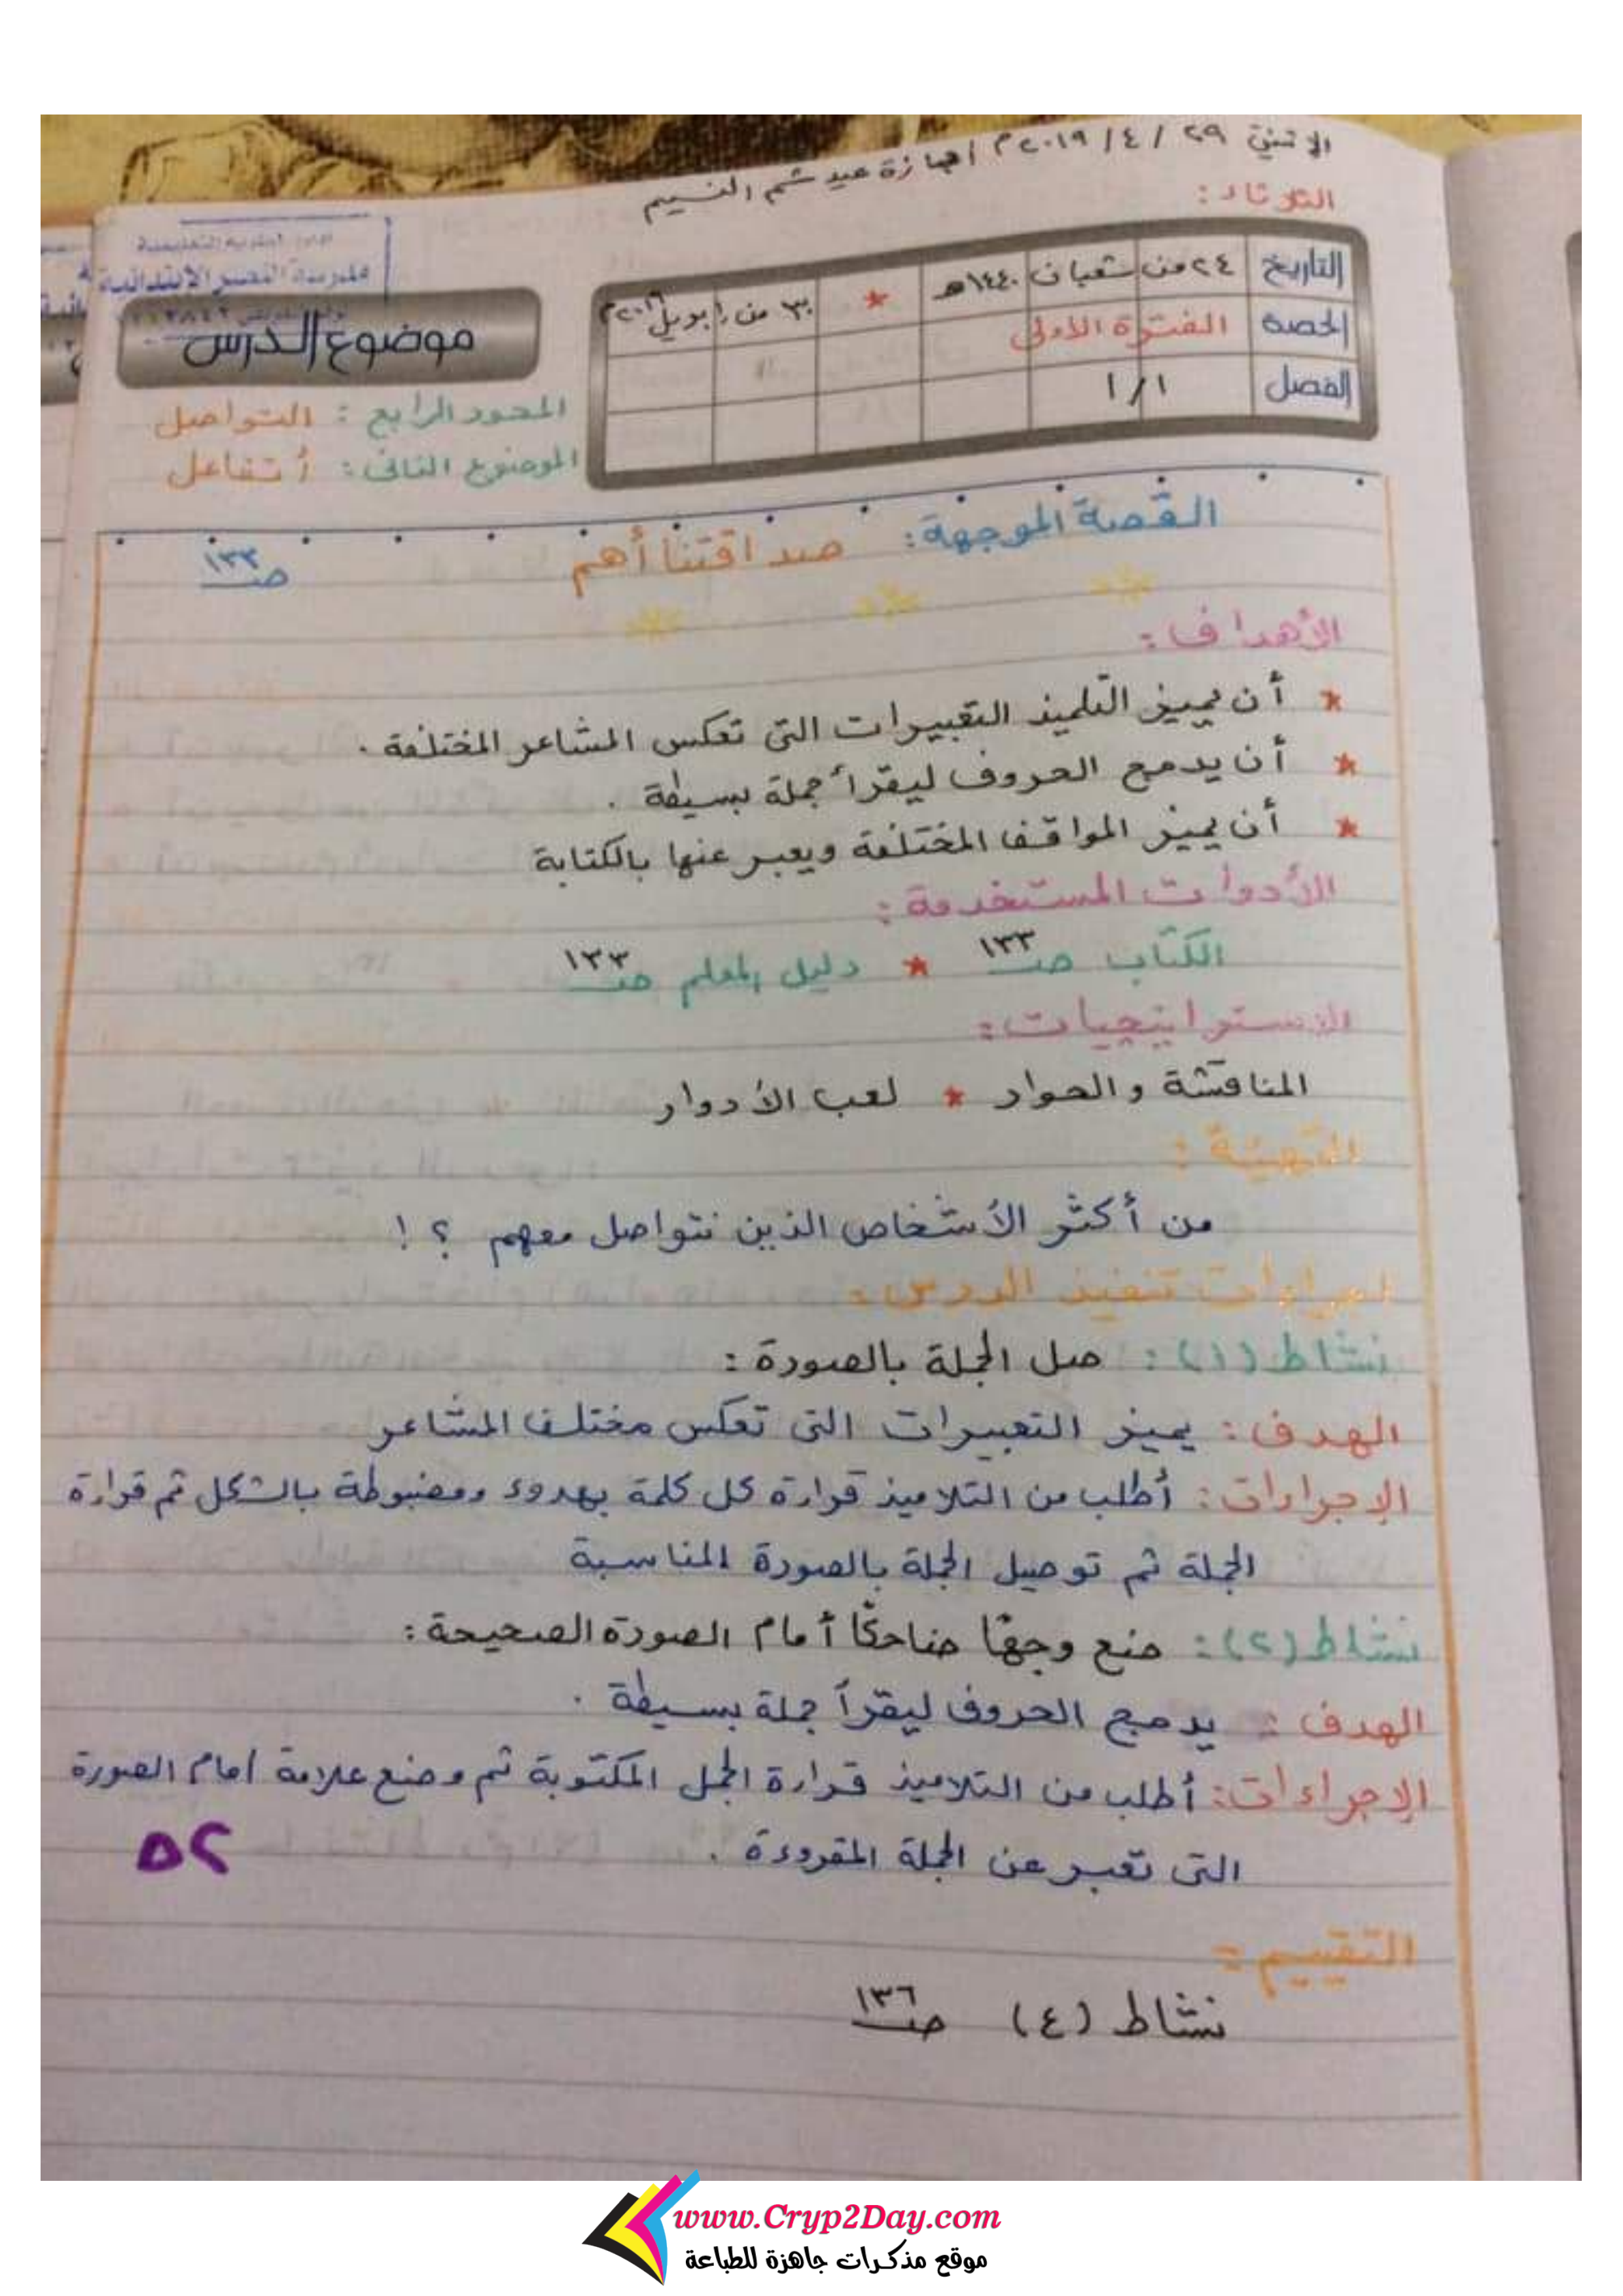 الاثنين ٢٩ / ٤ / ٢٠١٩ م اجازة عيد شم النسيم
الثلاثاء :
التاريخ ٢٤ من شعبان ١٤٤٠هـ * ٣٠ من ابريل ٢٠١٩م
الحصة الفترة الأولى
الفصل ١/١
مدرسة النصر الابتدائية
موضوع الدرس
المحور الرابع : التواصل
الموضوع الثاني : أتفاعل
القصة الموجهة : صداقتنا أهم صـ ١٣٣
الأهداف :
* أن يميز التلميذ التعبيرات التى تعكس المشاعر المختلفة .
* أن يدمج الحروف ليقرأ جملة بسيطة .
* أن يميز المواقف المختلفة ويعبر عنها بالكتابة
الأدوات المستخدمة :
الكتاب صـ ١٣٣ * دليل المعلم صـ ١٣٣
الاستراتيجيات :
المناقشة والحوار * لعب الأدوار
التهيئة :
من أكثر الأشخاص الذين نتواصل معهم ؟ !
اجراءات تنفيذ الدرس :
نشاط (١) : صل الجملة بالصورة :
الهدف : يميز التعبيرات التى تعكس مختلف المشاعر
الإجراءات : أطلب من التلاميذ قراءة كل كلمة بهدوء ومضبوطة بالشكل ثم قراءة
الجملة ثم توصيل الجملة بالصورة المناسبة
نشاط (٢) : ضع وجهًا ضاحكًا أمام الصورة الصحيحة :
الهدف : يدمج الحروف ليقرأ جملة بسيطة .
الإجراءات : أطلب من التلاميذ قراءة الجمل المكتوبة ثم وضع علامة امام الصورة
التى تعبر عن الجملة المقروءة .
٥٢
التقييم :
نشاط (٤) صـ ١٣٦
www.Cryp2Day.com
موقع مذكرات جاهزة للطباعة